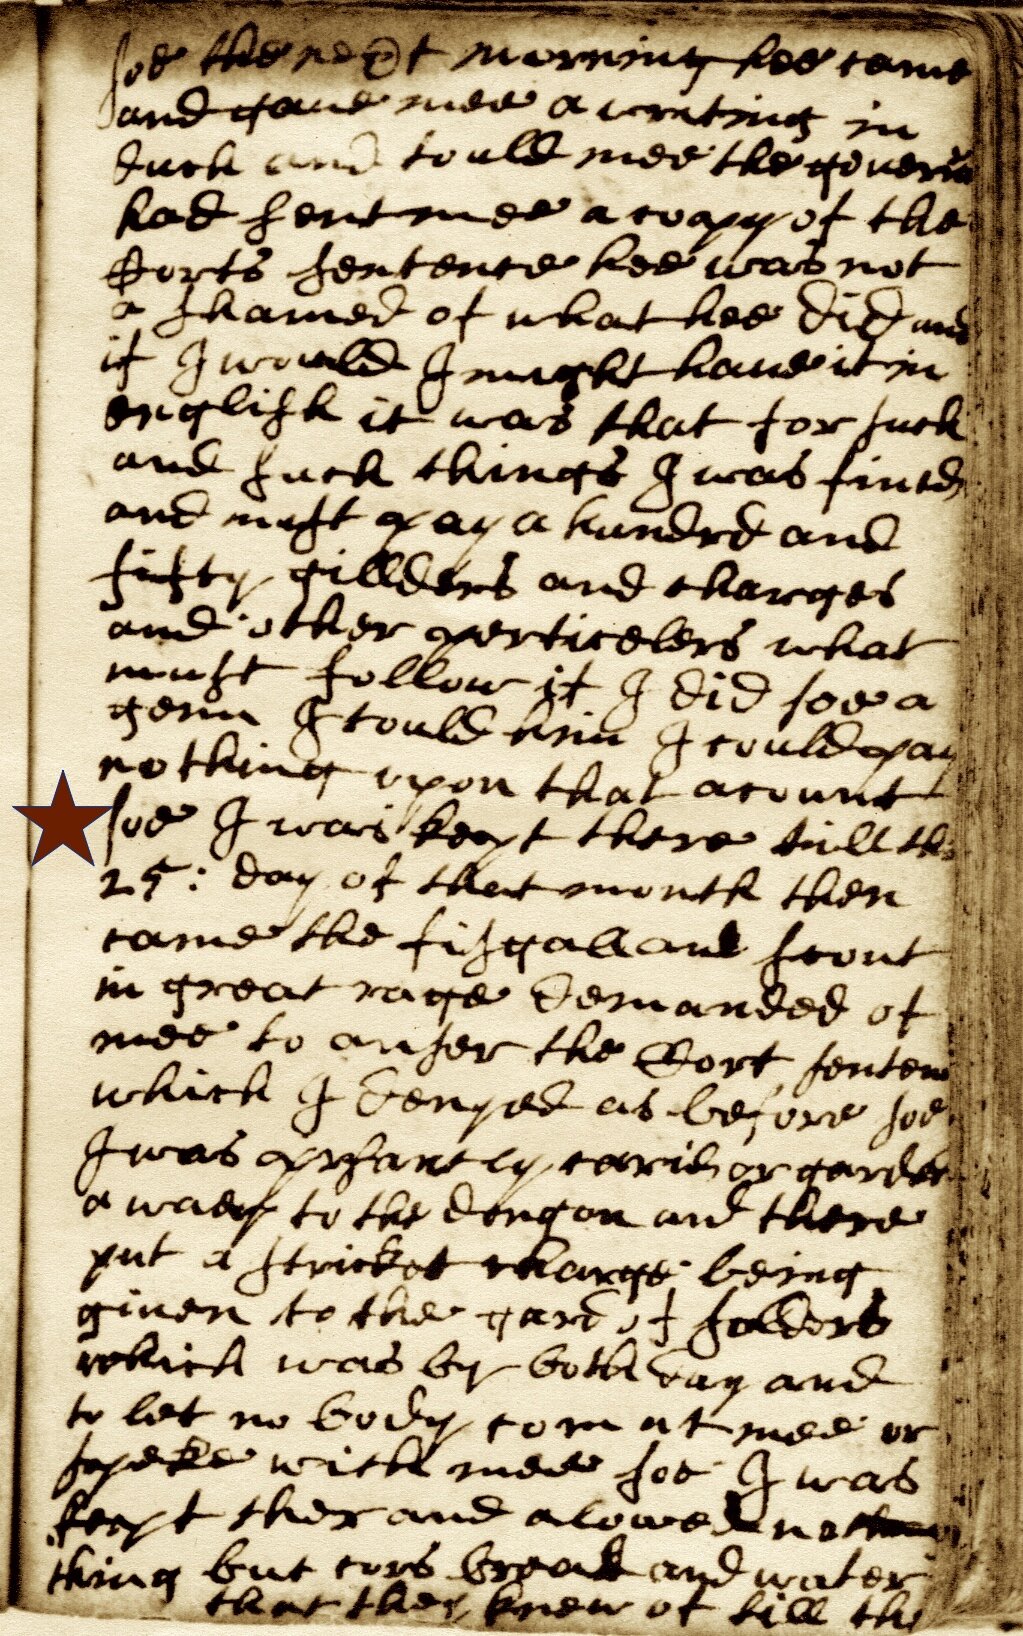 soe the next morning hee came
and gaue mee a writing in
duch and tould mee the gouern
had sent mee a coapy of the
Corts sentence hee was not
a shamed of what hee did and
if I would I might haue it in
english it was that for such
and such things I was fined
and must pay a hundrd and
fifty gillders and charges
and other perticelers what
must follow if I did soe a
gein I tould him I could pay
nothing upon that acount
soe I was kept there till the
25: day of that month then
came the fisgall and scout
in great rage demanded of
mee to anser the Cort senten
which I denyed as before soe
I was presantly caried or garded
a waey to the dongon and there
put a stricket charge being
giuen to the gard of solders
which was by both day and
to let no body com at mee or
speke with mee soe I was
keapt ther and alowed no
thing but cors bread and water
that they knew of till the